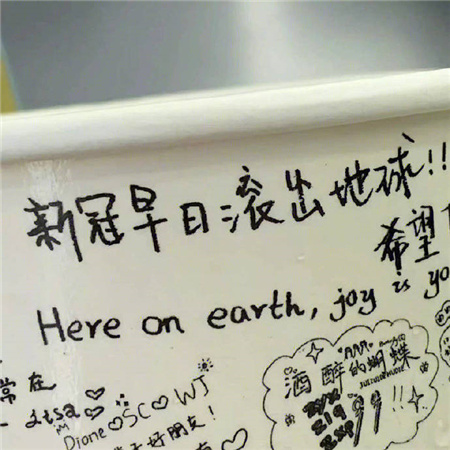 新冠早日滚出地球!!
希望
Here on earth, joy is yo
常在
Lisa
Diane♡SC♡WJ
好朋友!
酒醉的蝴蝶